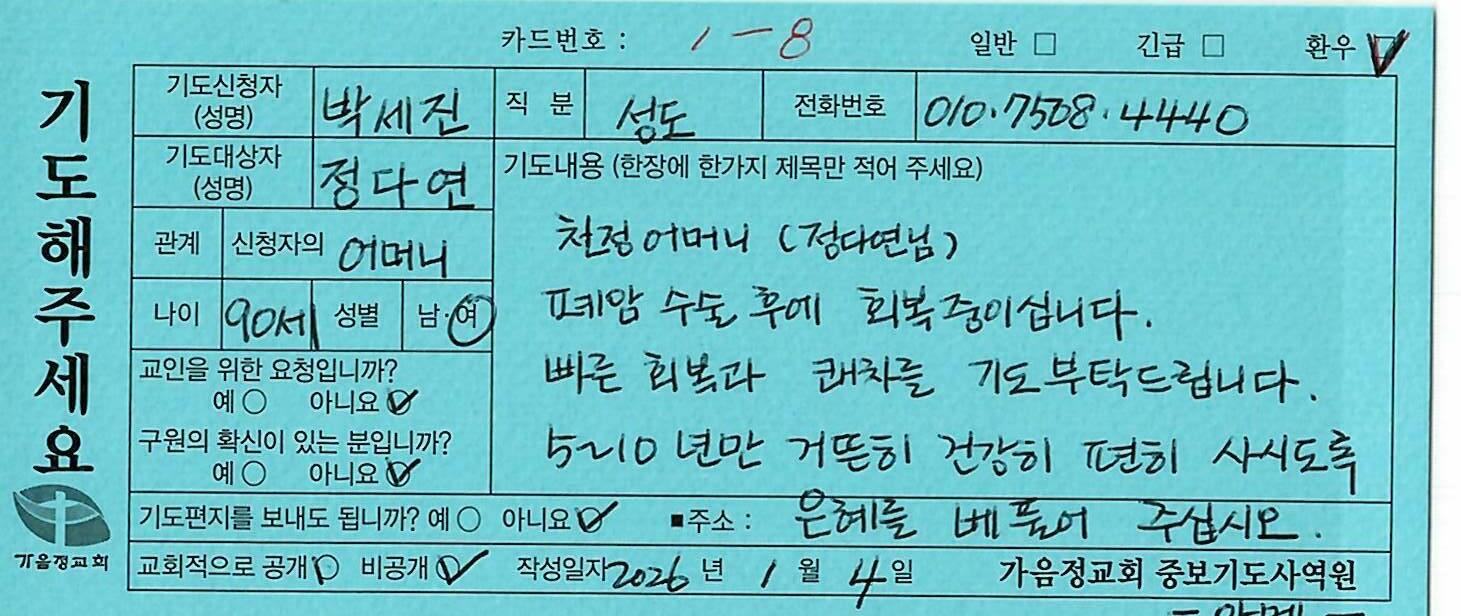 카드번호 : 1-8 일반 □ 긴급 □ 환우 ☑
기도해주세요
가음정교회
기도신청자 (성명) 박세진 직 분 성도 전화번호 010.7508.4440
기도대상자 (성명) 정다연
관계 신청자의 어머니
나이 90세 성별 남·여
교인을 위한 요청입니까?
예 ○ 아니요 ☑
구원의 확신이 있는 분입니까?
예 ○ 아니요 ☑
기도내용 (한장에 한가지 제목만 적어 주세요)
친정어머니 (정다연님)
폐암 수술 후에 회복중이십니다.
빠른 회복과 쾌차를 기도부탁드립니다.
5~10년만 거뜬히 건강히 편히 사시도록
은혜를 베풀어 주십시오.
기도편지를 보내도 됩니까? 예 ○ 아니요 ☑ ■주소 :
교회적으로 공개 ○ 비공개 ☑ 작성일자 2026 년 1 월 4 일 가음정교회 중보기도사역원